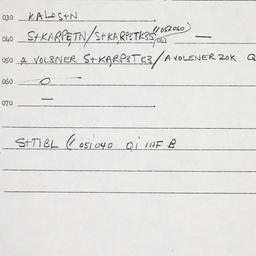 030 KALOS+N
040 S+KARPE,TN/S+KA,RP3TK3S,041 (1052060) —
050 A VOL3NER S+KA,RP3TK3/A VOLENER ZOK Q
060 O
070 —
S+T1BL (1 051040 Q1 INF B